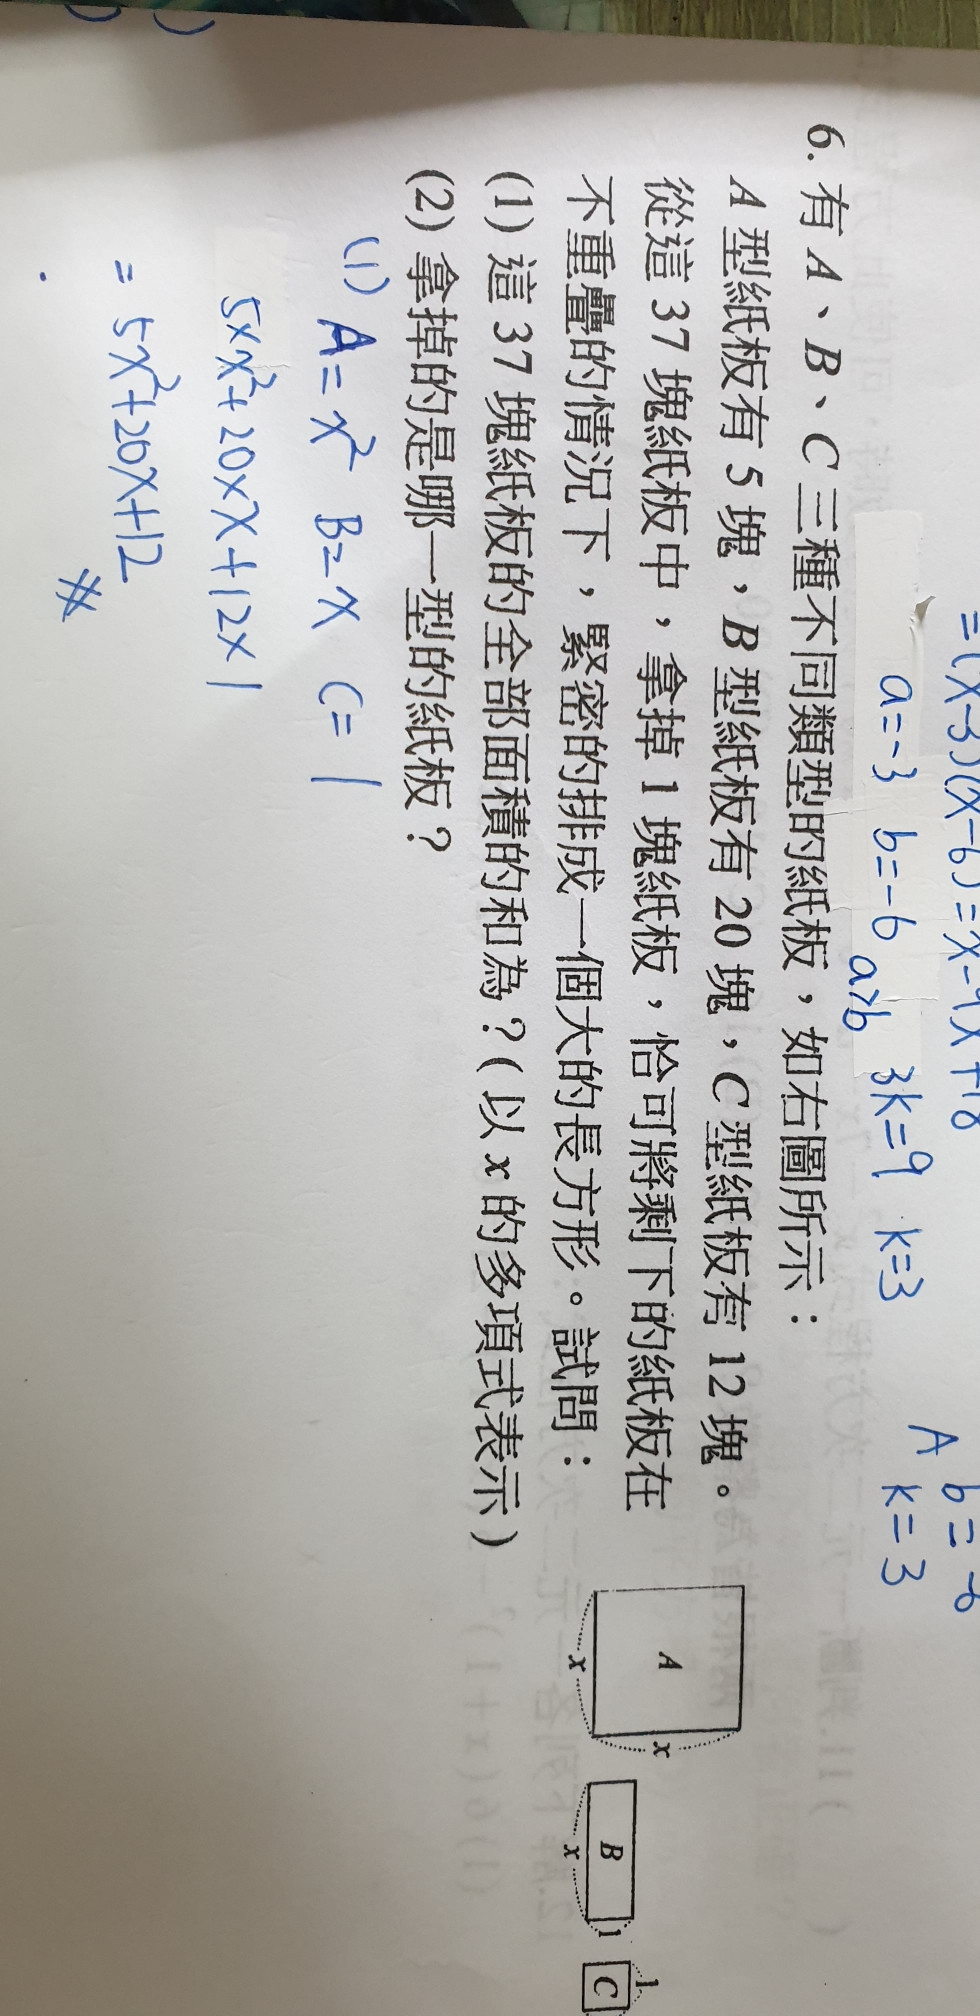 =(x-3)(x-6)=x-9x+18
b=-6
a=-3 b=-6 3k=9 k=3
A k=3
a>b
6. 有 A、B、C 三種不同類型的紙板，如右圖所示：
A 型紙板有 5 塊，B 型紙板有 20 塊，C 型紙板有 12 塊。
從這 37 塊紙板中，拿掉 1 塊紙板，恰可將剩下的紙板在
不重疊的情況下，緊密的排成一個大的長方形。試問：
(1) 這 37 塊紙板的全部面積的和為？( 以 x 的多項式表示 )
(2) 拿掉的是哪一型的紙板？
A
x
x
B
x
1
C
1
(1) A=x² B=x C=1
5×x²+20×x+12×1
=5x²+20x+12